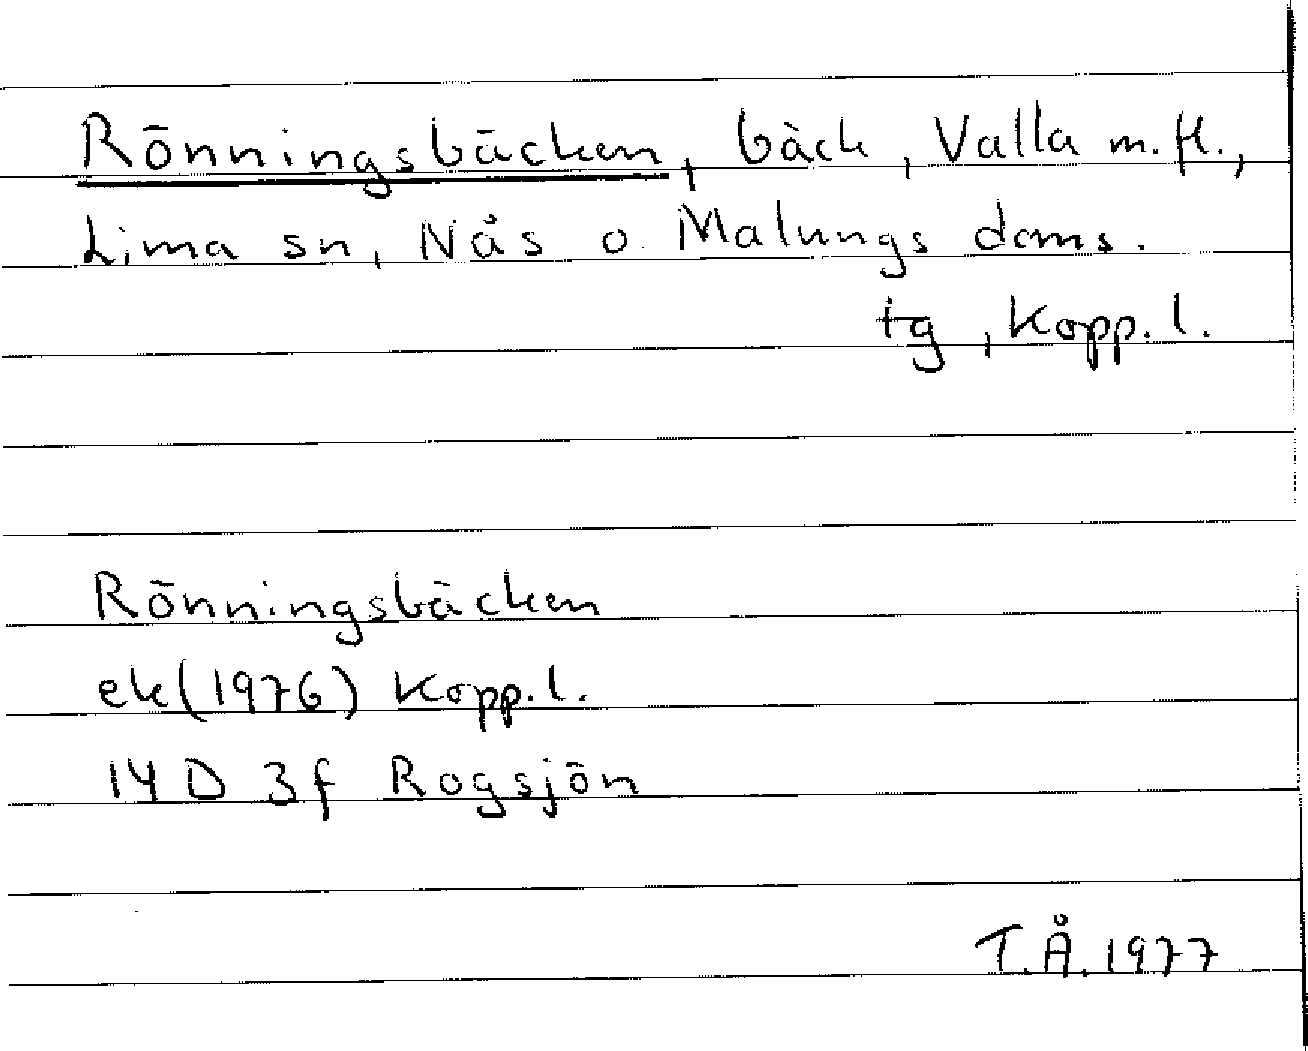 Rönningsbäcken, bäck, Valla m.fl.,
Lima sn, Nås o. Malungs doms.
tg, Kopp. l.
Rönningsbäcken
ek (1976) Kopp. l.
14 D 3f Rogsjön
T.Å. 1977